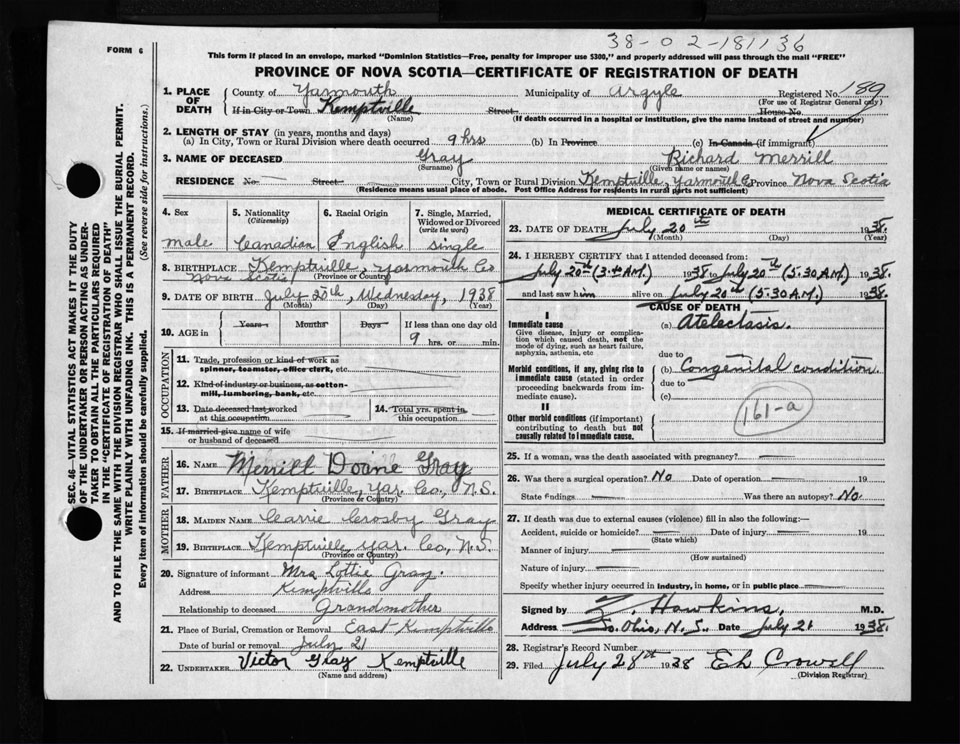 38-02-181136
FORM 6
This form if placed in an envelope, marked "Dominion Statistics—Free, penalty for improper use $300," and properly addressed will pass through the mail "FREE"
PROVINCE OF NOVA SCOTIA—CERTIFICATE OF REGISTRATION OF DEATH
SEC. 46—VITAL STATISTICS ACT MAKES IT THE DUTY
OF THE UNDERTAKER OR PERSON ACTING AS UNDER-
TAKER TO OBTAIN ALL THE PARTICULARS REQUIRED
IN THE "CERTIFICATE OF REGISTRATION OF DEATH"
AND TO FILE THE SAME WITH THE DIVISION REGISTRAR WHO SHALL ISSUE THE BURIAL PERMIT.
WRITE PLAINLY WITH UNFADING INK. THIS IS A PERMANENT RECORD.
Every item of information should be carefully supplied. (See reverse side for instructions.)
1. PLACE OF DEATH County of Yarmouth Municipality of Argyle Registered No. 189
(For use of Registrar General only)
If in City or Town Kemptville Street House No.
(Name) (If death occurred in a hospital or institution, give the name instead of street and number)
2. LENGTH OF STAY (in years, months and days)
(a) In City, Town or Rural Division where death occurred 9 hrs (b) In Province (c) In Canada (if immigrant)
3. NAME OF DECEASED Gray Richard Merrill
(Surname) (Given name or names)
RESIDENCE No. Street City, Town or Rural Division Kemptville, Yarmouth Co Province Nova Scotia
(Residence means usual place of abode. Post Office Address for residents in rural parts not sufficient)
4. Sex
male
5. Nationality
(Citizenship)
Canadian
6. Racial Origin
English
7. Single, Married,
Widowed or Divorced
(write the word)
single
8. BIRTHPLACE Kemptville, Yarmouth Co
Nova Scotia (Province or Country)
9. DATE OF BIRTH July 20th, Wednesday, 1938
(Month) (Day) (Year)
10. AGE in Years Months Days If less than one day old
9 hrs. or min.
OCCUPATION
11. Trade, profession or kind of work as
spinner, teamster, office clerk, etc.
12. Kind of industry or business, as cotton-
mill, lumbering, bank, etc.
13. Date deceased last worked
at this occupation
14. Total yrs. spent in
this occupation
15. If married give name of wife
or husband of deceased
FATHER
16. NAME Merrill Doane Gray
17. BIRTHPLACE Kemptville, Yar. Co., N.S.
(Province or Country)
MOTHER
18. MAIDEN NAME Carrie Crosby Gray
19. BIRTHPLACE Kemptville, Yar. Co., N.S.
(Province or Country)
20. Signature of informant Mrs Lottie Gray.
Address Kemptville
Relationship to deceased Grandmother
21. Place of Burial, Cremation or Removal East Kemptville
Date of burial or removal July 21
22. UNDERTAKER Victor Gray Kemptville
(Name and address)
MEDICAL CERTIFICATE OF DEATH
23. DATE OF DEATH July 20th 1938.
(Month) (Day) (Year)
24. I HEREBY CERTIFY that I attended deceased from:
July 20th (3 A.M.) 1938 to July 20th (5.30 A.M.) 1938.
and last saw him alive on July 20th (5.30 A.M.) 1938.
CAUSE OF DEATH
I
Immediate cause
Give disease, injury or complica-
tion which caused death, not the
mode of dying, such as heart failure,
asphyxia, asthenia, etc
(a) Atelectasis.
due to
Morbid conditions, if any, giving rise to
immediate cause (stated in order
proceeding backwards from im-
mediate cause).
(b) Congenital condition.
due to
(c)
161-a
II
Other morbid conditions (if important)
contributing to death but not
causally related to immediate cause.
25. If a woman, was the death associated with pregnancy?
26. Was there a surgical operation? No Date of operation 19
State findings Was there an autopsy? No
27. If death was due to external causes (violence) fill in also the following:—
Accident, suicide or homicide? Date of injury 19
(State which)
Manner of injury
(How sustained)
Nature of injury
Specify whether injury occurred in industry, in home, or in public place
Signed by Z. Hawkins, M.D.
Address So. Ohio, N.S. Date July 21 1938.
28. Registrar's Record Number
29. Filed July 28th 1938 Eh Crowell
(Division Registrar)